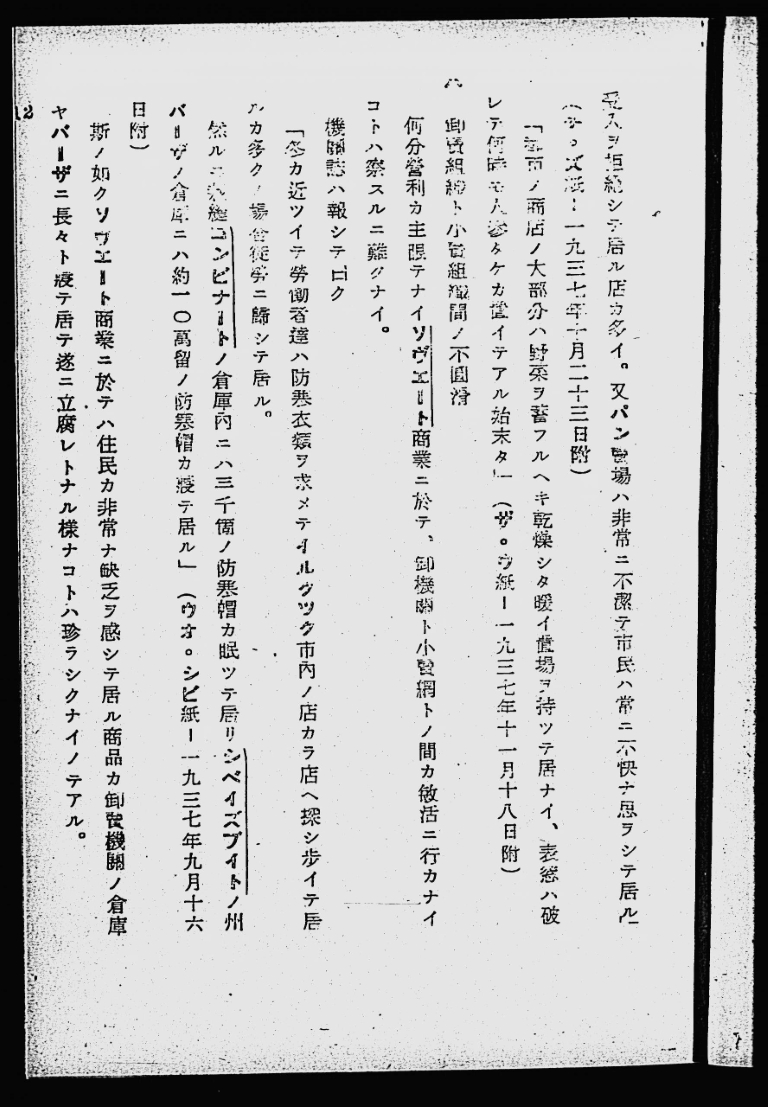 受入ヲ拒絶シテ居ル店カ多イ。又パン賣場ハ非常ニ不潔テ市民ハ常ニ不快ナ思ヲシテ居ル」
(ザ。ズ紙ー一九三七年十月二十三日附)
「都市ノ商店ノ大部分ハ野菜ヲ蓄フルヘキ乾燥シタ暖イ置場ヲ持ツテ居ナイ、表窓ハ破
レテ何時モ人參タケカ置イテアル始末タ」(ザ。ウ紙ー一九三七年十一月十八日附)
ハ 卸賣組織ト小賣組織間ノ不圓滑
何分營利カ主眼テナイソヴエート商業ニ於テ、卸機關ト小賣網トノ間カ敏活ニ行カナイ
コトハ察スルニ難クナイ。
機關誌ハ報シテ曰ク
「冬カ近ツイテ勞働者達ハ防寒衣類ヲ求メテイルクツク市內ノ店カラ店ヘ探シ歩イテ居
ルカ多クノ場合徒勞ニ歸シテ居ル。
然ルニ裁縫コンビナートノ倉庫內ニハ三千個ノ防寒帽カ眠ツテ居リシベイズブイトノ州
バーザノ倉庫ニハ約一〇萬留ノ防寒帽カ寢テ居ル」(ウオ。シビ紙ー一九三七年九月十六
日附)
斯ノ如クソヴエート商業ニ於テハ住民カ非常ナ缺乏ヲ感シテ居ル商品カ卸賣機關ノ倉庫
ヤバーザニ長々ト寢テ居テ遂ニ立腐レトナル樣ナコトハ珍ラシクナイノテアル。
12